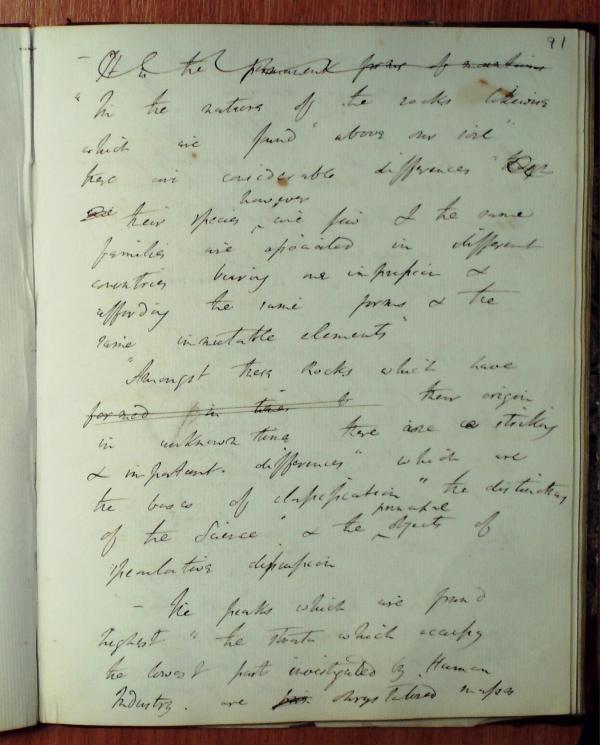 91
– the permanent forms of mountains
"In the nature of the rocks likewise
which are found" above our soil"
there are considerable differences"
however
their species are few & the same
families are associated in different
countries bearing one impression &
affording the same forms & the
same immutable elements"
"Amongst these Rocks which have
formed in times their origin
in unknown time there are striking
& important. differences" which are
the bases of classification" the distinctions
principal
of the Science" & the objects of
speculative discussion
– The peaks which are found
highest" the strata which occupy
the lowest part investigated by Human
Industry. are chrystalized masses